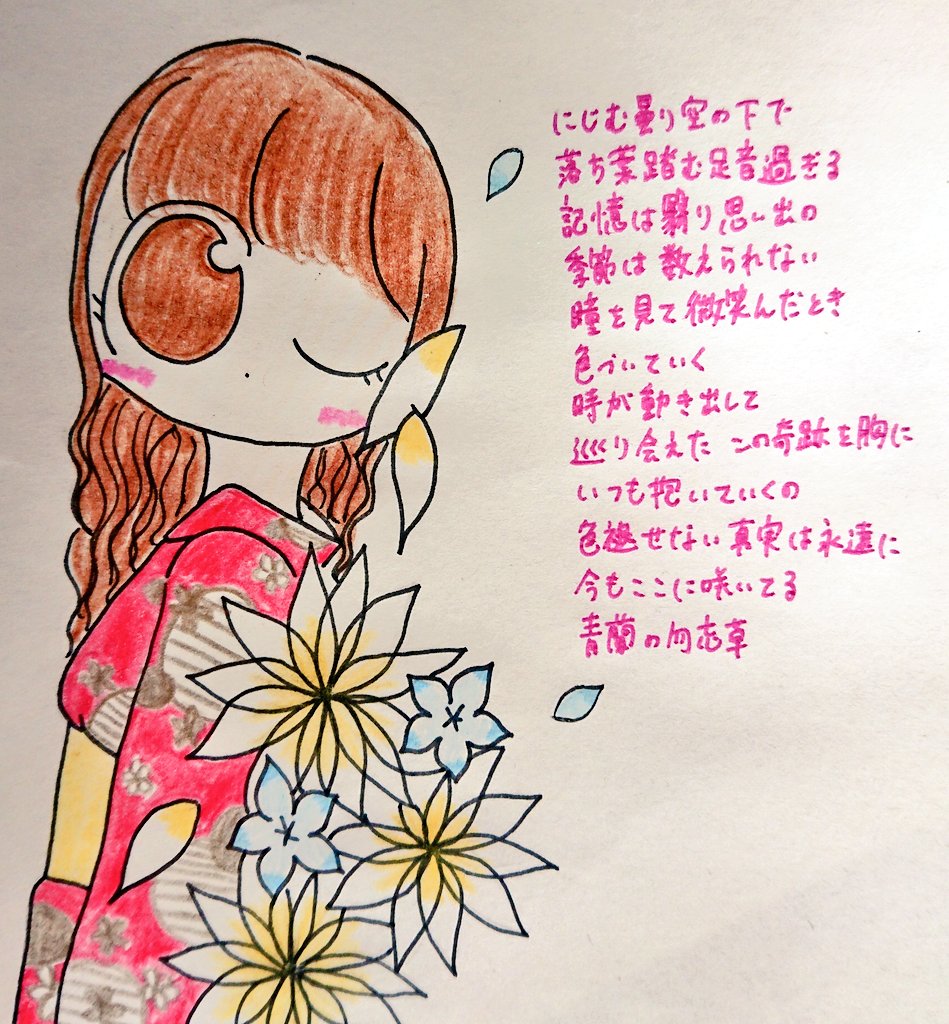 にじむ曇り空の下で
落ち葉踏む足音過ぎる
記憶は翳り思い出の
季節は数えられない
瞳を見て微笑んだとき
色づいていく
時が動き出して
巡り会えた この奇跡を胸に
いつも抱いていくの
色褪せない真実は永遠に
今もここに咲いてる
青蘭の勿忘草